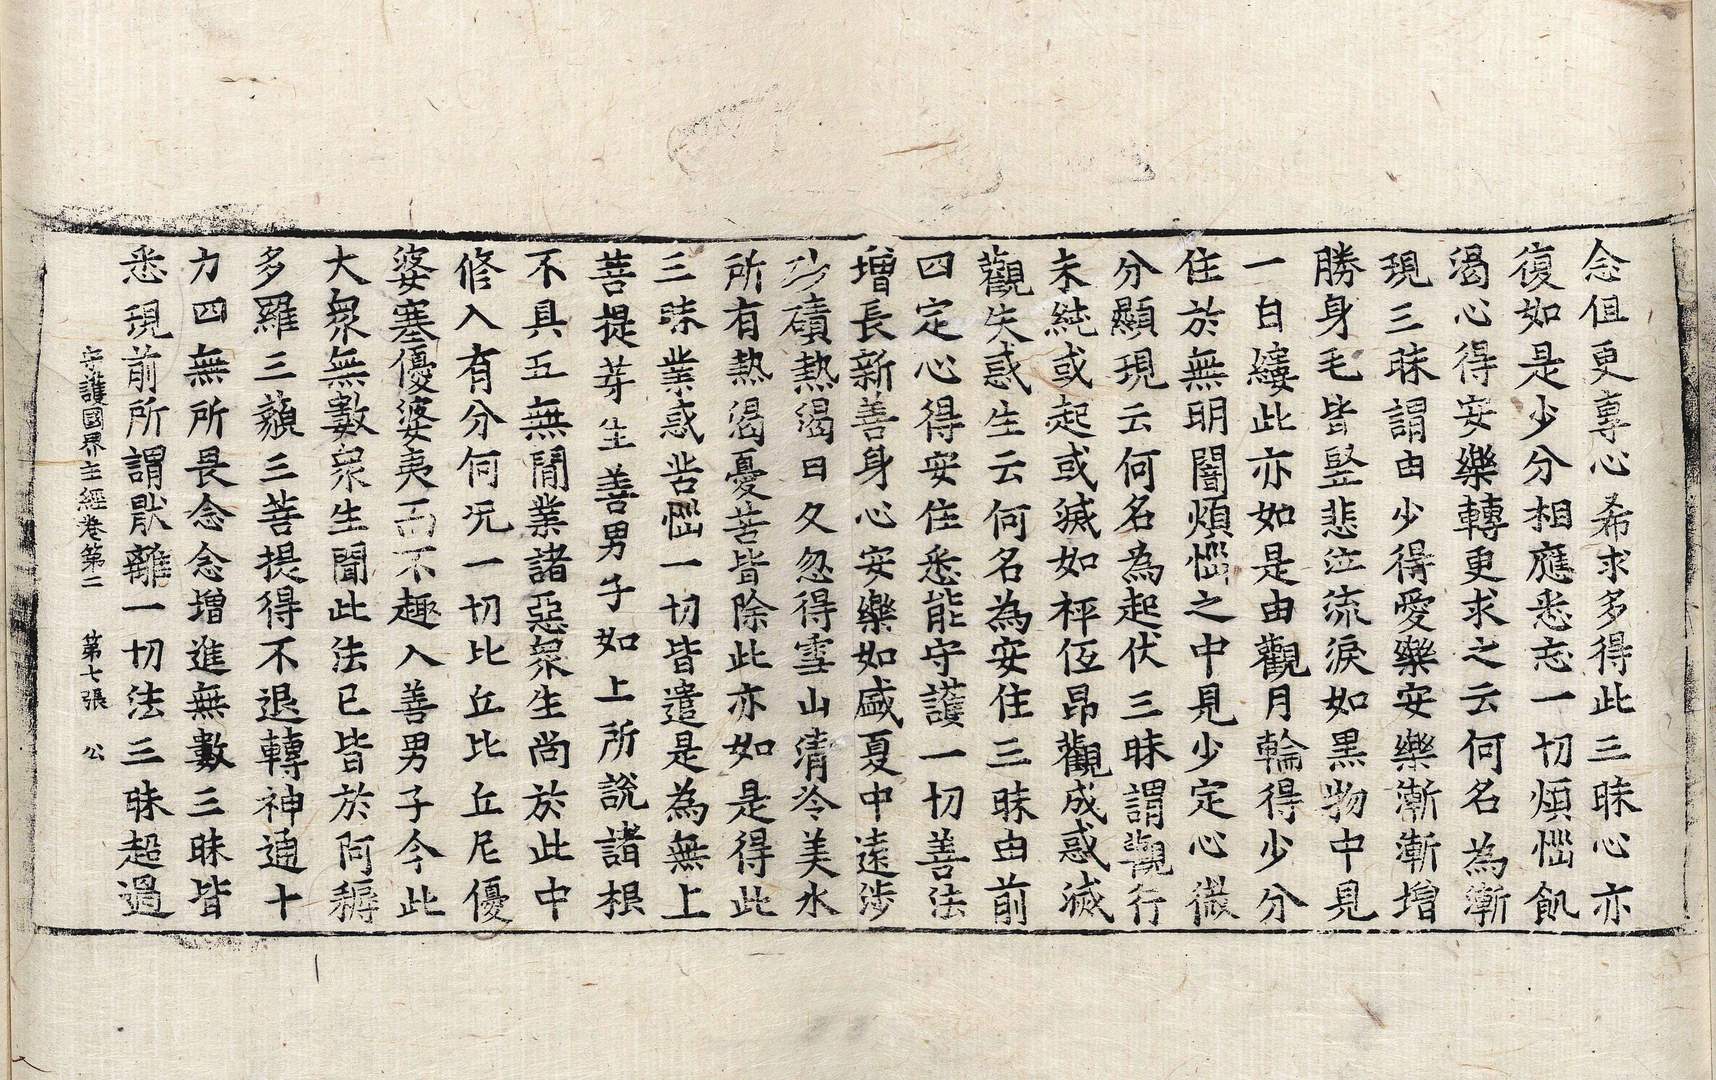 念但更專心希求多得此三昧心亦
復如是少分相應悉忘一切煩惱飢
渴心得安樂轉更求之云何名為漸
現三昧謂由少得愛樂安樂漸漸增
勝身毛皆竪悲泣流淚如黒物中見
一白縷此亦如是由觀月輪得少分
住於無明闇煩惱之中見少定心微
分顯現云何名為起伏三昧謂觀行
未純或起或滅如秤低昂觀成惑滅
觀失惑生云何名為安住三昧由前
四定心得安住悉能守護一切善法
增長新善身心安樂如盛夏中遠涉
沙磧熱渴日久忽得雪山清冷美水
所有熱渴憂苦皆除此亦如是得此
三昧業惑苦惱一切皆遣是為無上
菩提芽生善男子如上所說諸根
不具五無閒業諸惡衆生尚於此中
修入有分何況一切比丘比丘尼優
婆塞優婆夷而不趣入善男子今此
大衆無數衆生聞此法已皆於阿耨
多羅三藐三菩提得不退轉神通十
力四無所畏念念增進無數三昧皆
悉現前所謂猒離一切法三昧超過
守護國界主經卷第二　第七張　公